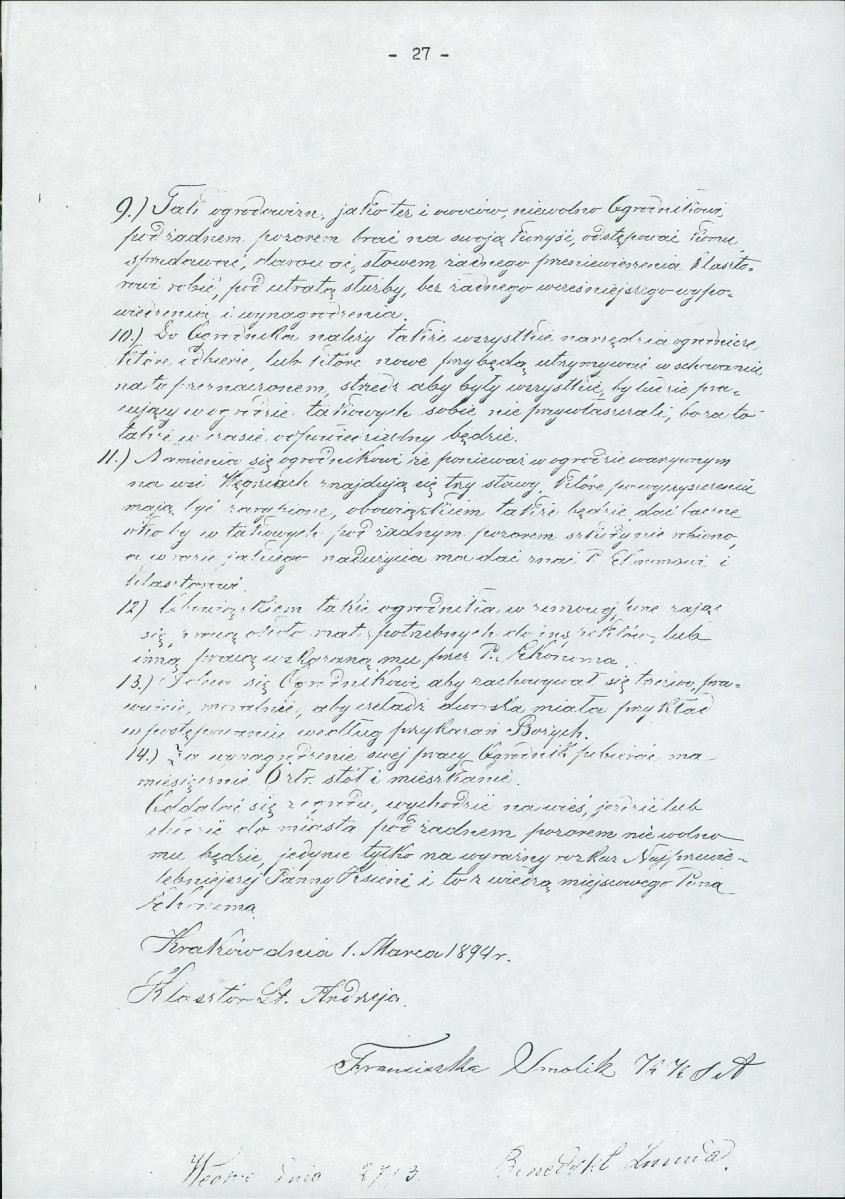 - 27 -
9.) Tak ogrodowizn, jako też i owoców, niewolno Ogrodnikowi
pod żadnem pozorem brać na swoją korzyść, odstępować komu,
sprzedawać, darować, słowem żadnego przeniewierzenia Klaszto-
rowi robić, pod utratą służby, bez żadnego wcześniejszego wypo-
wiedzenia i wynagrodzenia.
10.) Do Ogrodnika należy także wszystkie narzędzia ogrodnicze
które odbierze, lub które nowe przybędą utrzymywać w schowaniu
na to przeznaczonem, strzedz aby były wszystkie, by ludzie pra-
cujący w ogrodzie takowych sobie nie przywłaszczali, bo za to
także w czasie odpowiedzialny będzie.
11.) Namienia się ogrodnikowi że ponieważ w ogrodzie warzywnym
na wsi Węgrzcach znajdują się trzy stawy, które po wyczyszczeniu
mają być zarybione, obowiązkiem także będzie dać baczne
oko by w takowych pod żadnym pozorem szkody nie robiono,
a w razie jakiego nadużycia ma dać znać P. Ekonomowi i
Klasztorowi.
12) Obowiązkiem także ogrodnika w zimowej porze zająć
się pracą około mat potrzebnych do inspektów, lub
inną pracą wskazaną mu przez P. Ekonoma.
13.) Poleca się Ogrodnikowi aby zachowywał się trzeźwo, pra-
wdziwie, moralnie, aby czeladź dworska miała przykład
w postępowaniu według przykazań Bożych.
14.) Za wynagrodzenie swej pracy Ogrodnik pobierać ma
miesięcznie złr. stół i mieszkanie.
Oddalać się z ogrodu, wychodzić na wieś, jeździć lub
chodzić do miasta pod żadnem pozorem nie wolno
mu będzie, jedynie tylko na wyraźny rozkaz Najprzewie-
lebniejszej Panny Ksieni i to z wiedzą miejscowego Pana
Ekonoma.
Kraków dnia 1. Marca 1894 r.
Klasztór Św. Andrzeja.
Franciszka Smolik
dnia 27/3. Benedykt